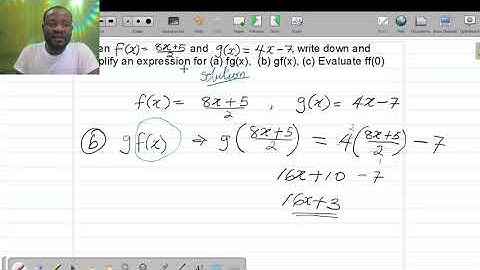 en f(x) = 8x+5/2 and g(x) = 4x-7, write down and
plify an expression for (a) fg(x), (b) gf(x), (c) Evaluate ff(0)
Solution
f(x) = 8x+5/2 , g(x) = 4x-7
(b) gf(x) ⇒ g(8x+5/2) = 4(8x+5/2) - 7
16x+10 -7
16x+3